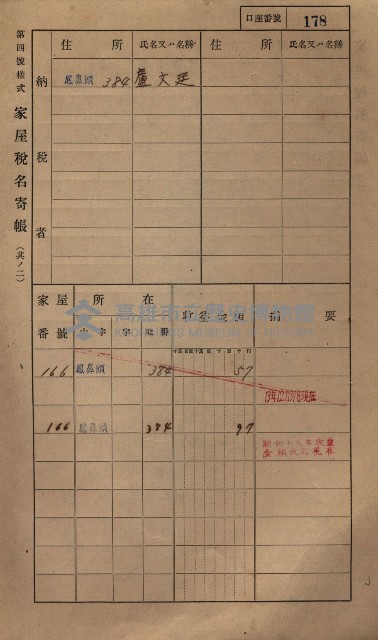 口座番號 178
第四號樣式 家屋稅名寄帳（其ノ二）
住所 氏名又ハ名稱 住所 氏名又ハ名稱
納稅者
鳳鼻頭 384 盧文廷
家屋番號 所在 賃貸價格 摘要
大字 字 地番
高雄市立歷史博物館
KAOHSIUNG MUSEUM OF HISTORY
166 鳳鼻頭 384 57
13年12月31日現在
166 鳳鼻頭 384 97